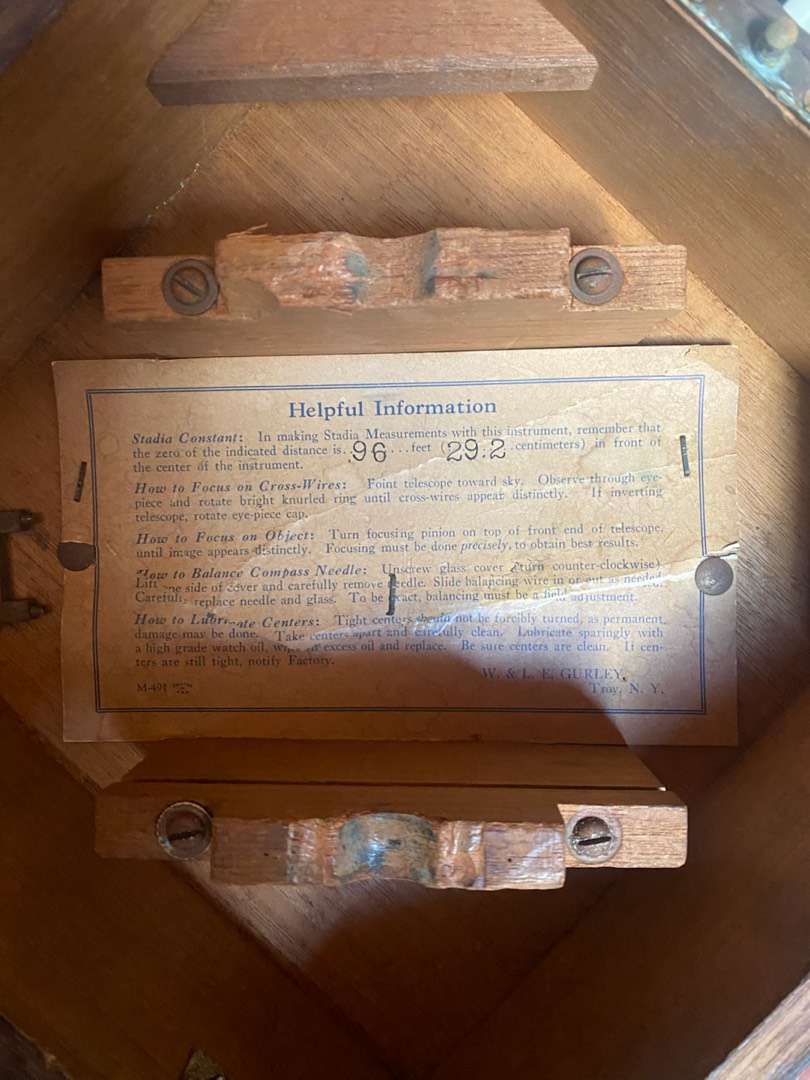 Helpful Information
Stadia Constant: In making Stadia Measurements with this instrument, remember that
the zero of the indicated distance is..96...feet (29.2.centimeters) in front of
the center of the instrument.
How to Focus on Cross-Wires: Point telescope toward sky. Observe through eye-
piece and rotate bright knurled ring until cross-wires appear distinctly. If inverting
telescope, rotate eye-piece cap.
How to Focus on Object: Turn focusing pinion on top of front end of telescope,
until image appears distinctly. Focusing must be done precisely, to obtain best results.
How to Balance Compass Needle: Unscrew glass cover (turn counter-clockwise)
Lift one side of cover and carefully remove needle. Slide balancing wire in or out as needed.
Carefully replace needle and glass. To be exact, balancing must be a field adjustment.
How to Lubricate Centers: Tight centers should not be forcibly turned, as permanent
damage may be done. Take centers apart and carefully clean. Lubricate sparingly with
a high grade watch oil, wipe off excess oil and replace. Be sure centers are clean. If cen-
ters are still tight, notify Factory.
W. & L. E. GURLEY,
Troy, N. Y.
M-491